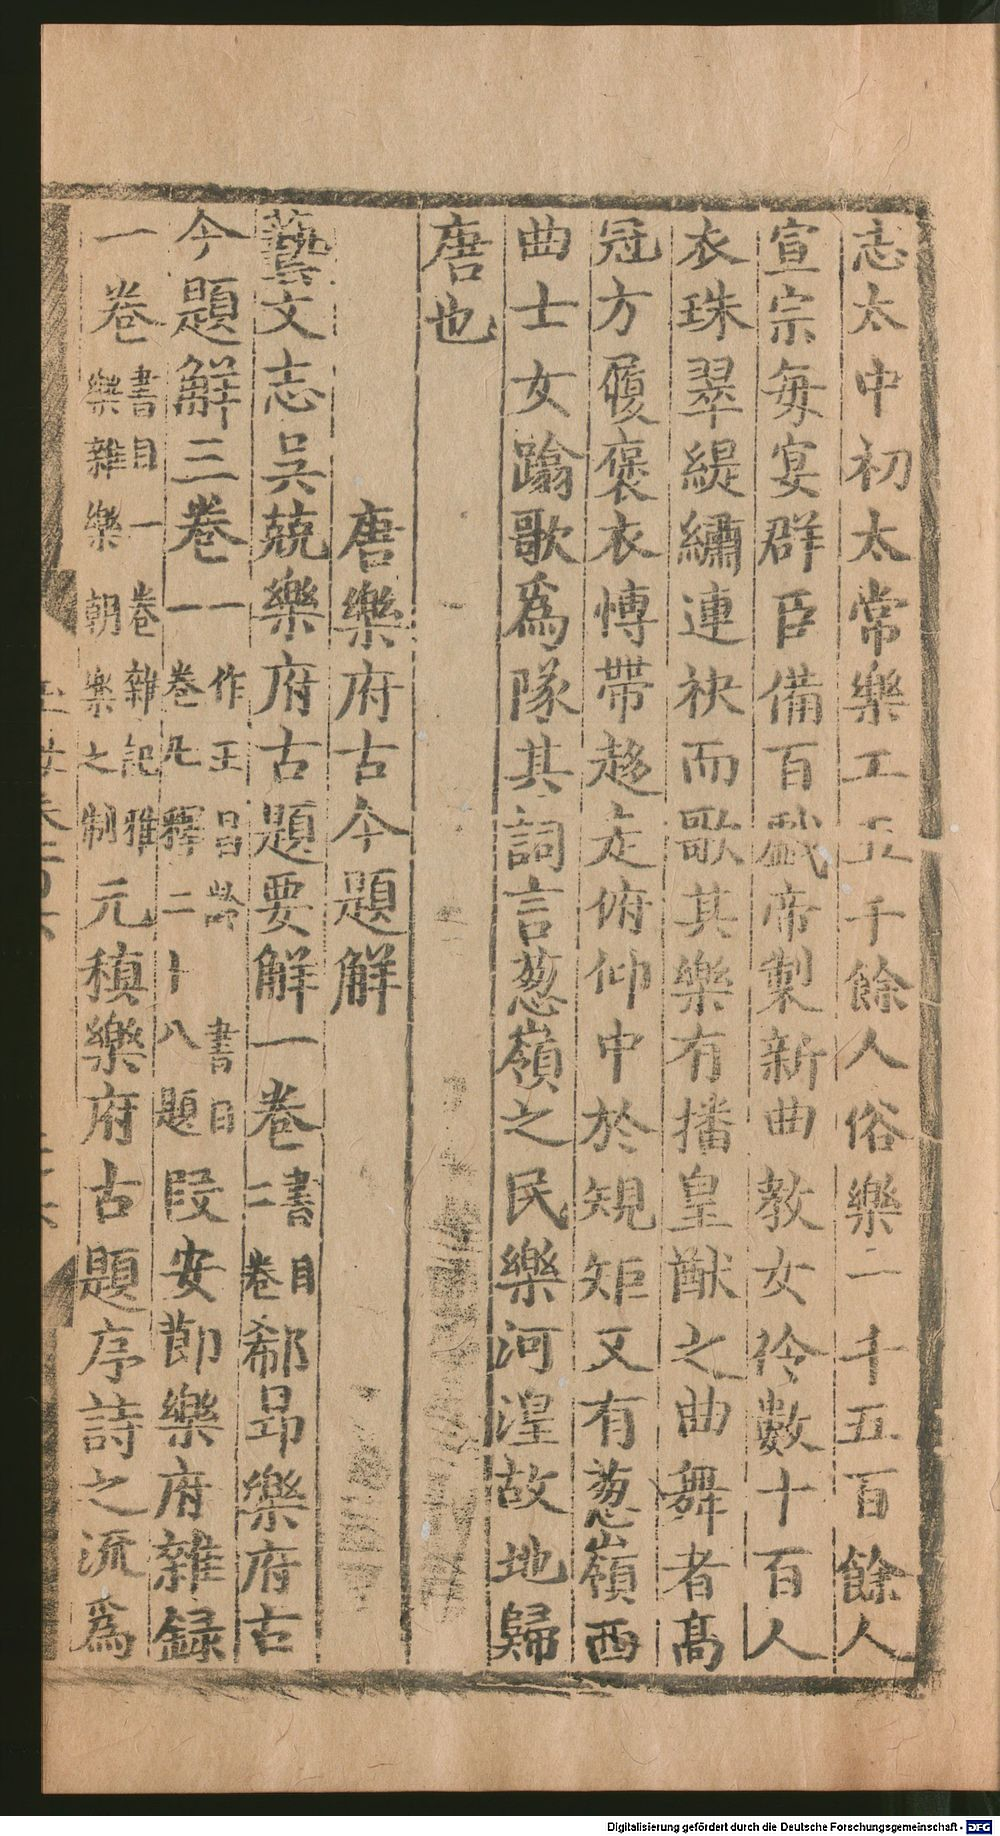 志太中初太常樂工五千餘人俗樂一千五百餘人
宣宗每宴群臣備百戲帝製新曲教女伶數十百人
衣珠翠緹繡連袂而歌其樂有播皇猷之曲舞者高
冠方履褒衣博帶趍走俯仰中於規矩又有葱嶺西
曲士女蹹歌為隊其詞言葱嶺之民樂河湟故地歸
唐也
唐樂府古今題解
藝文志吳兢樂府古題要解一卷書目二卷郗昂樂府古
今題解三卷一作王昌齡書目一卷凡釋二十八題叚安節樂府雜録
一卷書目一卷雜記雅樂雜樂朝樂之制元稹樂府古題序詩之流為
Digitalisierung gefördert durch die Deutsche Forschungsgemeinschaft - DFG